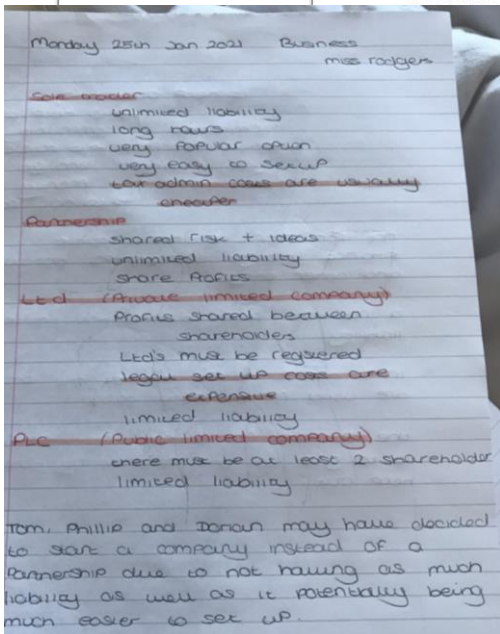 Monday 25th Jan 2021 Business
miss rodgers
Sole trader
unlimited liability
long hours
very popular option
very easy to set up
tax admin costs are usually
cheaper
Partnership
shared risk + ideas
unlimited liability
share Profits
Ltd (Private limited company)
Profits shared between
shareholders
Ltd's must be registered
legal set up cost are
expensive
limited liability
PLC (Public limited company)
there must be at least 2 shareholder
limited liability
Tom, Phillip and Dorian may have decided
to start a company instead of a
Partnership due to not having as much
liability as well as it potentially being
much easier to set up.